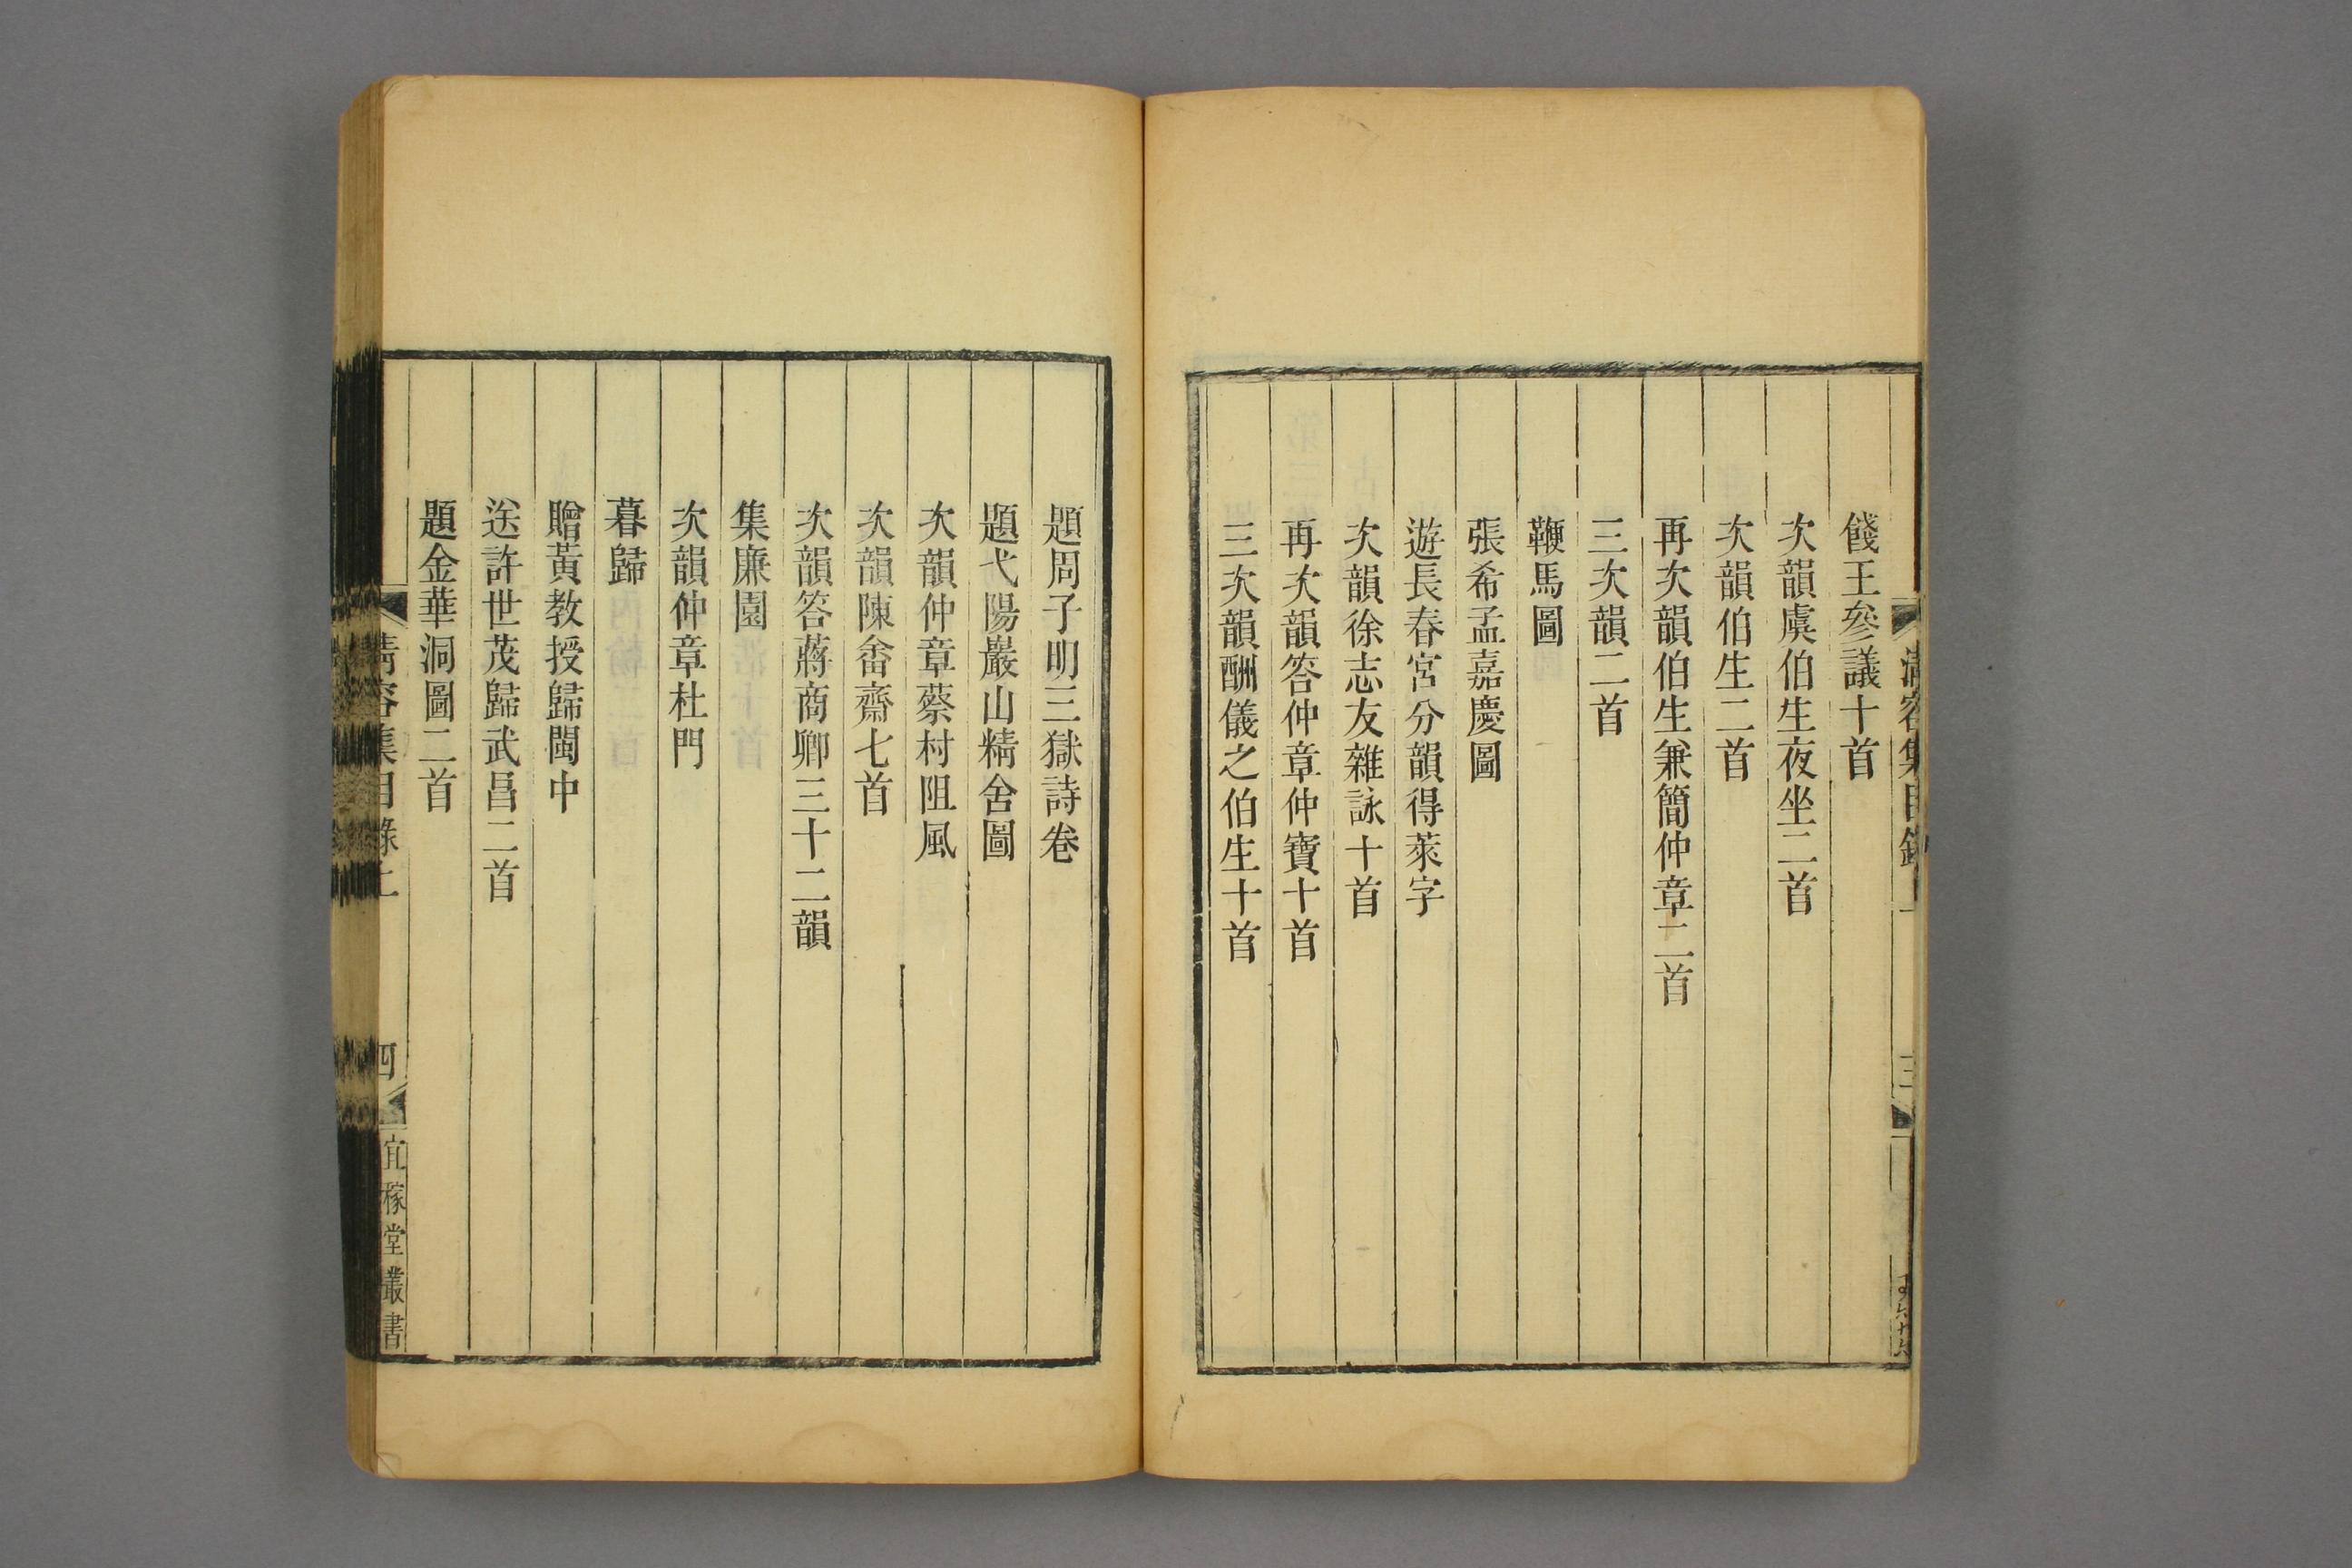 清容集目錄上
三
餞王參議十首
次韻虞伯生夜坐二首
次韻伯生二首
再次韻伯生兼簡仲章二首
三次韻二首
鞭馬圖
張希孟嘉慶圖
遊長春宮分韻得萊字
次韻徐志友雜詠十首
再次韻答仲章仲寶十首
三次韻酬儀之伯生十首
題周子明三獄詩卷
題弋陽巖山精舍圖
次韻仲章蔡村阻風
次韻陳畬齋七首
次韻答蔣商卿三十二韻
集廉園
次韻仲章杜門
暮歸
贈黃教授歸閩中
送許世茂歸武昌二首
題金華洞圖二首
清容集目錄上
四
宜稼堂叢書